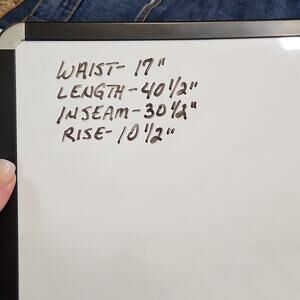 WAIST- 17"
LENGTH-40 1/2"
INSEAM-30 1/2"
RISE-10 1/2"